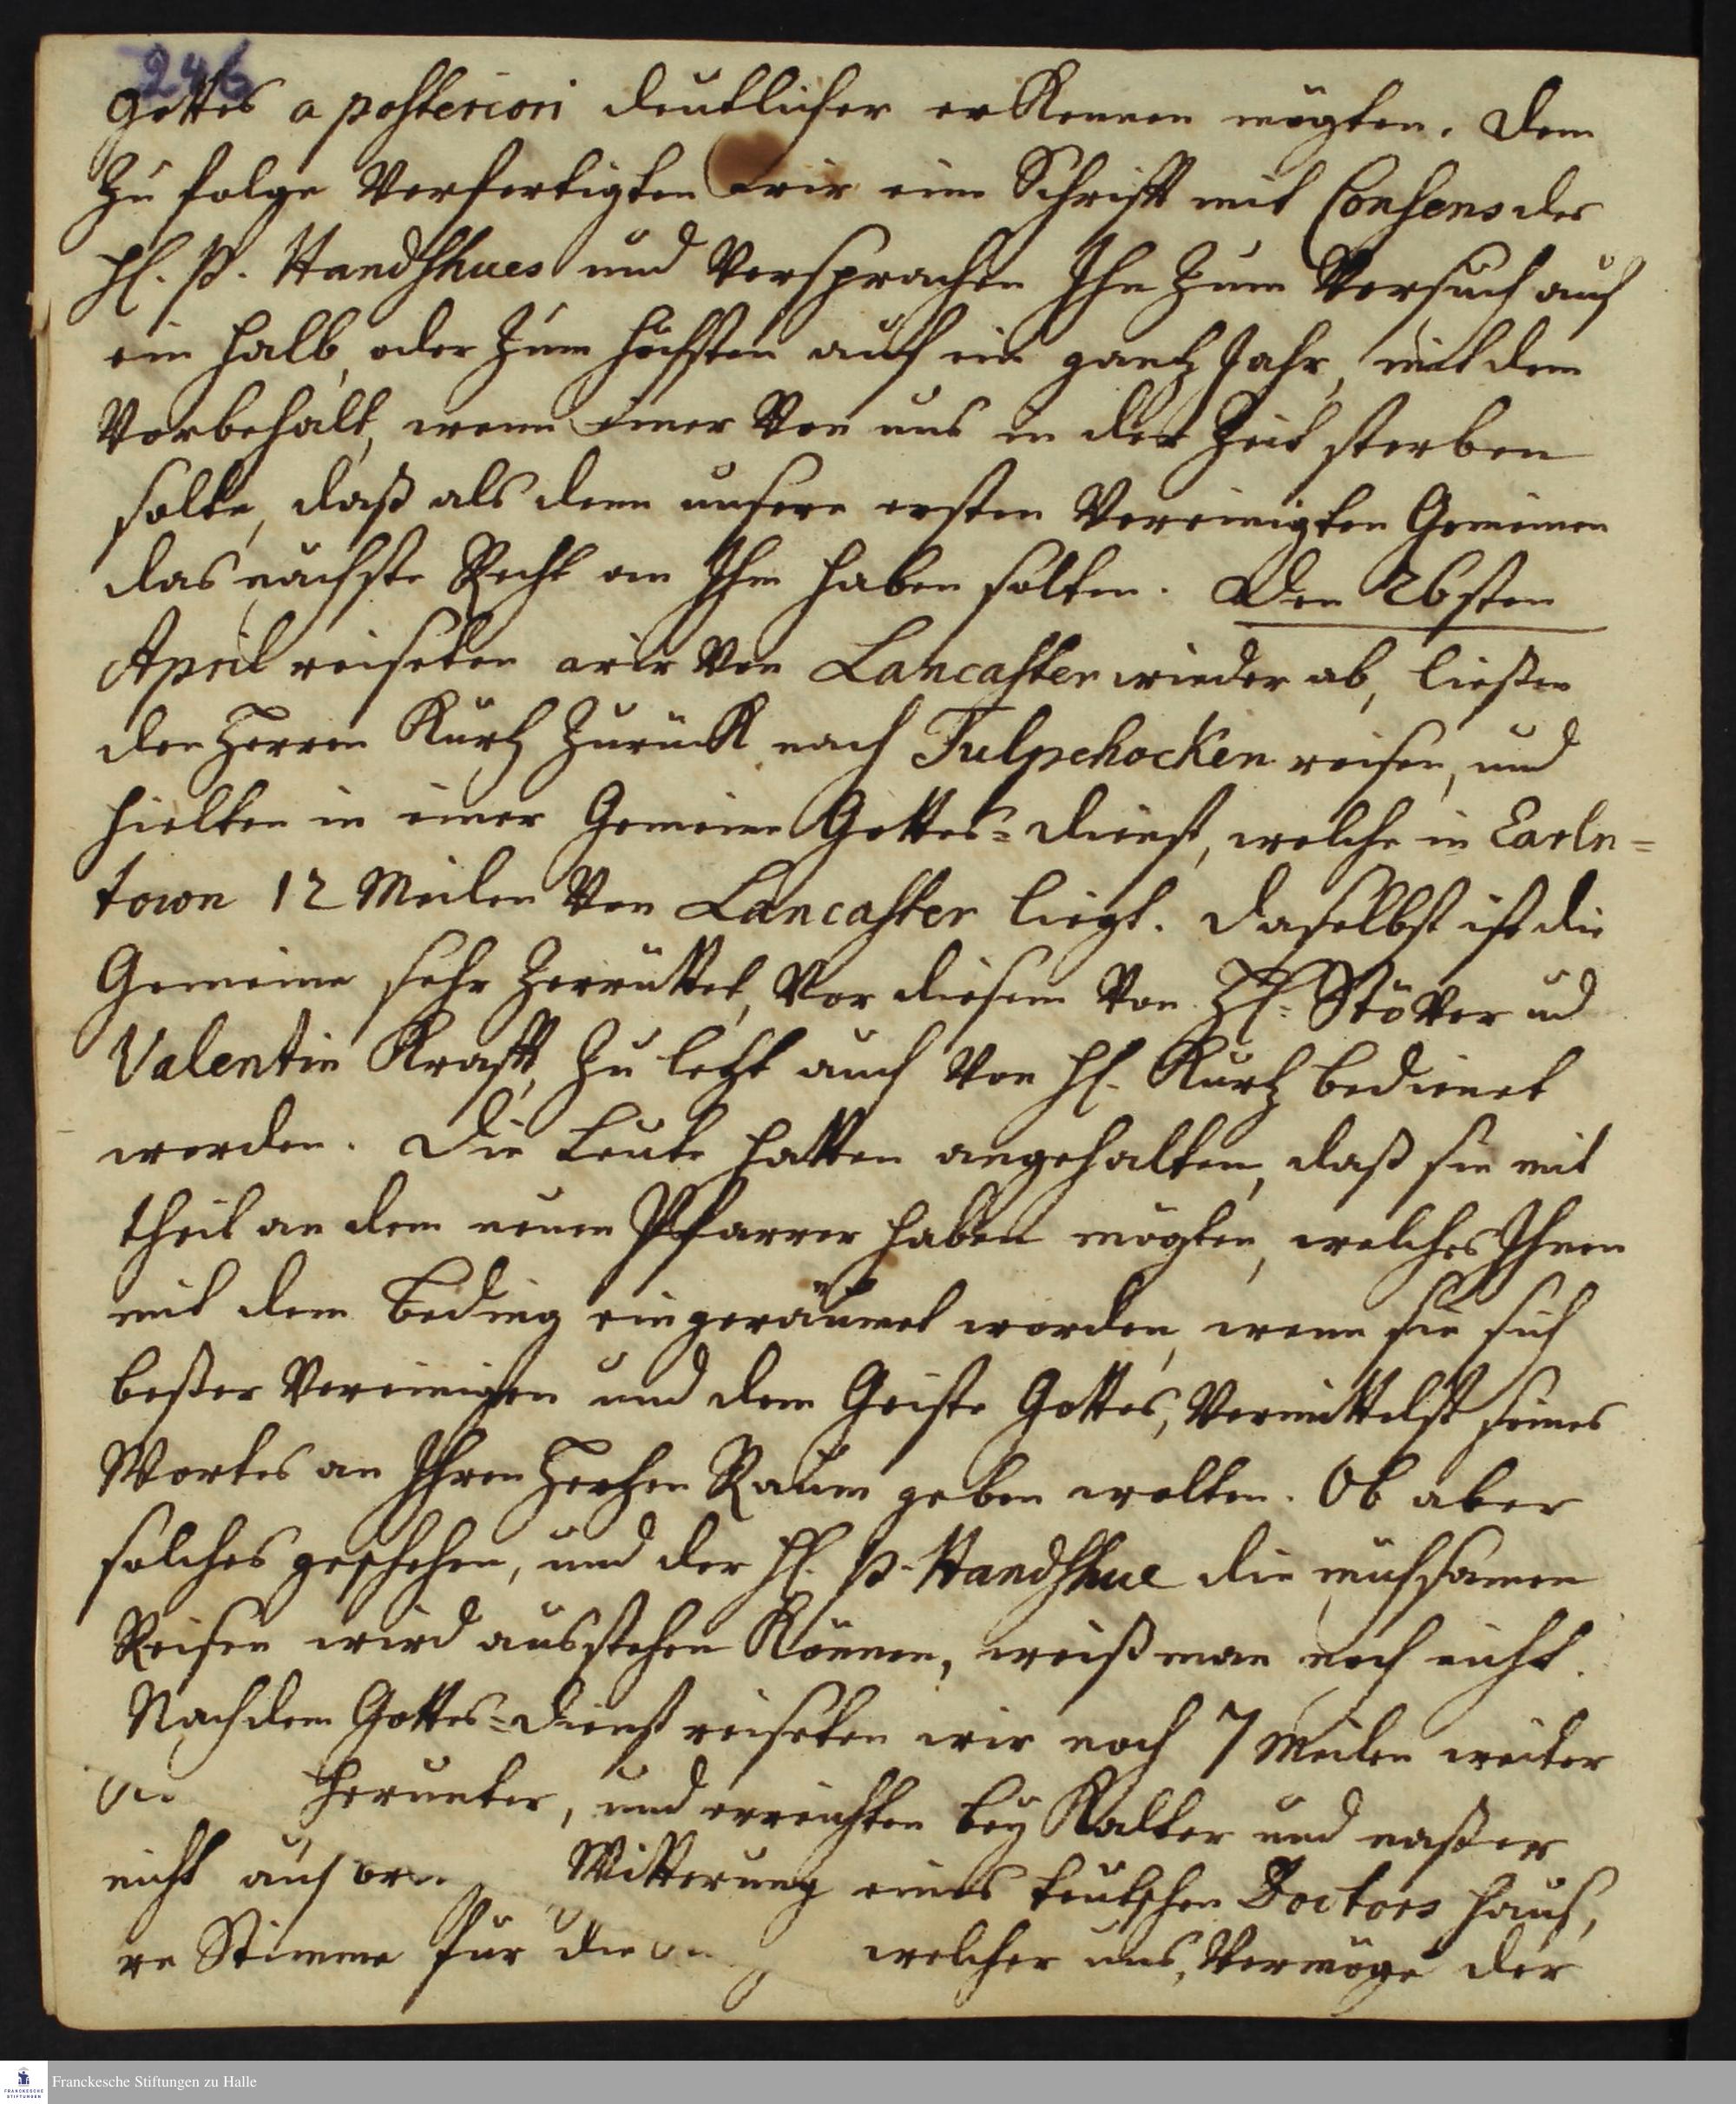 246
Gottes a posteriori deutlicher erkennen mögten. Dem
zu folge verfertigten wir eine Schrifft mit Consens des
H. P. Handshues und versprachen Ihn zum Versuch auf
ein halb, oder zum höchsten auf ein gantz Jahr, mit dem
Vorbehalt, wenn einer von uns in der Zeit sterben
solte, daß als denn unsere ersten Vereinigten Gemeinen
das nächste Recht an Ihm haben solten. Den 26sten
April reiseten wir von Lancaster wieder ab, ließen
den Herrn Kurtz zurück nach Tulpehocken reisen, und
hielten in einer Gemeine Gottes=dienst, welche in Earln=
town 12 Meilen von Lancaster liegt. Daselbst ist die
Gemeine sehr zerrüttet, vor diesem von H. Stöver ud
Valentin Krafft, zu letzt auch von H. Kurtz bedienet
worden. Die Leute hatten angehalten, daß sie mit
theil an dem neuen Pfarrer haben mögten, welches Ihnen
mit dem Beding eingeräumet worden, wenn sie sich
beßer vereinigen und dem Geiste Gottes, vermittelst seines
Wortes an Ihren Hertzen Raum geben wolten. Ob aber
solches geschehen, und der H. P. Handshue die mühsamen
Reisen wird ausstehen können, weiß man noch nicht.
Nach dem Gottes=dienst reiseten wir noch 7 Meilen weiter
herunter, und erreichten bey kalter und naßer
nicht auf Witterung eines teutschen Doctors Hauß,
re Stimme für die welcher uns, vermöge der
Franckesche Stiftungen zu Halle